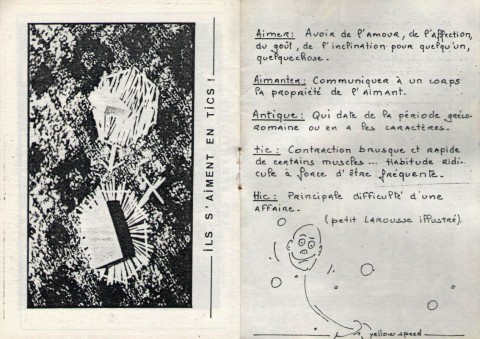 iLS S'AiMENT EN TiCS !
Aimer: Avoir de l'amour, de l'affection,
du goût, de l'inclination pour quelqu'un,
quelque chose.
Aimanter: Communiquer à un corps
la propriété de l'aimant.
Antique: Qui date de la période gréco-
romaine ou en a les caractères.
tic: Contraction brusque et rapide
de certains muscles... Habitude ridi-
cule à force d'être fréquente.
Hic: Principale difficulté d'une
affaire.
(petit LAROUSSE illustré).
yellow speed